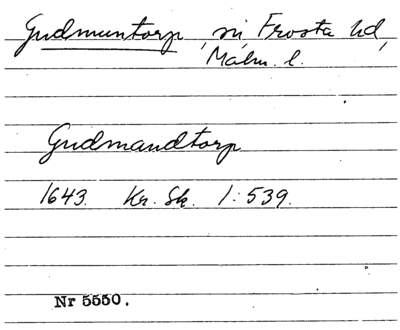 Gudmuntorp, sn, Frosta hd,
Malm. l.
Gudmandtorp
1643. Kr. Sk. 1:539.
Nr 5550.